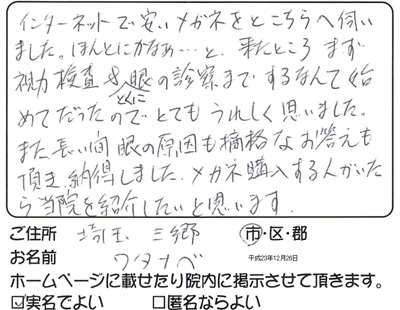 インターネットで安いメガネをとこちらへ伺い
ました。ほんとにかなぁ…と、来たところまず
視力検査&眼の診察までするなんて始
とくに
めてだったのでとてもうれしく思いました。
また長い間眼の原因も摘格なお答えも
頂き、納得しました。メガネ購入する人がいた
ら当院を紹介したいと思います。
ご住所 埼玉 三郷 市・区・郡
お名前 ワタナベ 平成23年12月26日
ホームページに載せたり院内に掲示させて頂きます。
☑実名でよい □匿名ならよい